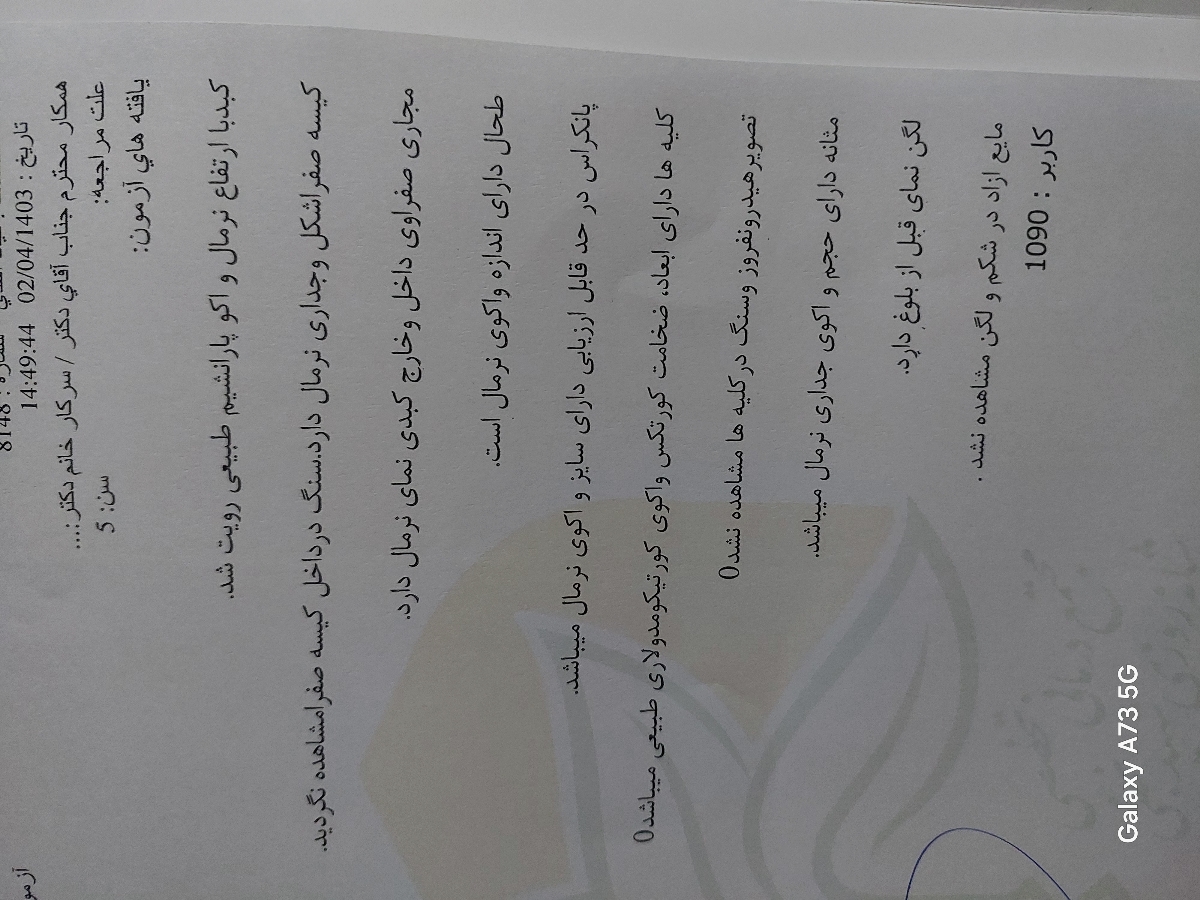 شماره : 8148
تاریخ : 02/04/1403 14:49:44
همکار محترم جناب آقاي دکتر / سرکار خانم دکتر:...
علت مراجعه: سن: 5
یافته هاي آزمون:
کبدبا ارتفاع نرمال و اکو پارانشیم طبیعی رویت شد.
کیسه صفراشکل وجداری نرمال دارد.سنگ درداخل کیسه صفرامشاهده نگردید.
مجاری صفراوی داخل وخارج کبدی نمای نرمال دارد.
طحال دارای اندازه واکوی نرمال است.
پانکراس در حد قابل ارزیابی دارای سایز و اکوی نرمال میباشد.
کلیه ها دارای ابعاد، ضخامت کورتکس واکوی کورتیکومدولاری طبیعی میباشد0
تصویرهیدرونفروز وسنگ درکلیه ها مشاهده نشد0
مثانه دارای حجم و اکوی جداری نرمال میباشد.
لگن نمای قبل از بلوغ دارد.
مایع ازاد در شکم و لگن مشاهده نشد .
کاربر : 1090
Galaxy A73 5G